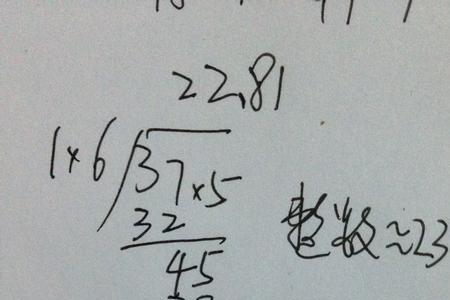 22.81
1×6 37×5
32
45
整数≈23